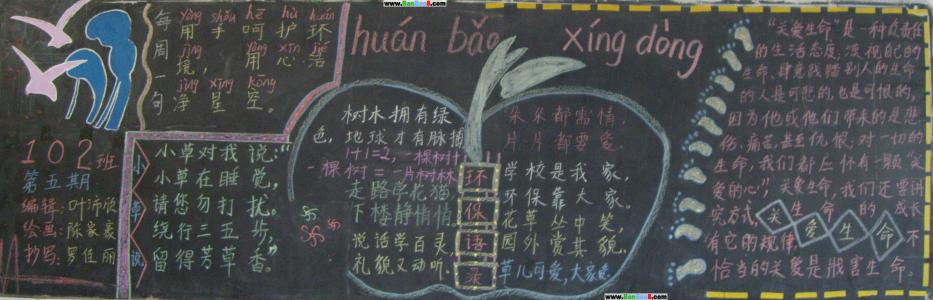 www.BanBaoB.com
每 yòng shǒu hē hù huán
周 用手呵护环
一 jìng yòng xīn jié
句 境，用心洁
jìng xīng kōng
净星空。
huán bǎo xíng dòng
102班
第五期
编辑：叶沛欣
绘画：陈家豪
抄写：罗佳丽
小草说
小草对我说：“
小草在睡觉，
请您勿打扰。
绕行三五步，
留得芳草香。”
树木拥有绿
色，地球才有脉搏
1+1=2，一棵树+
一棵树=一片树林
走路学花猫，
下楼静悄悄。
说话学百灵，
礼貌又动听。
环保语录
朵朵都需情，
片片都要爱。
学校是我家，
环保靠大家。
花草丛中笑，
园外赏其貌。
草儿可爱，大家爱
“关爱生命”是一种负责任
的生活态度，漠视自己的
生命，肆意践踏别人的生命
的人是可悲的，也是可恨的，
因为他或他们带来的是悲
伤、痛苦，甚至仇恨。对一切的
生命，我们都应怀有一颗“关
爱的心”。关爱生命，我们还需讲
究方式，生命的成长
有它的规律，不
恰当的关爱是戕害生命。
关爱生命
www.BanBaoB.com